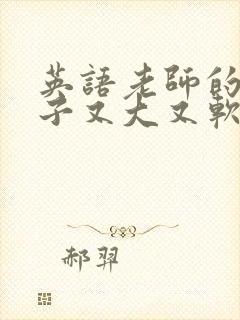 英語老師的
子又大又軟
郝羿